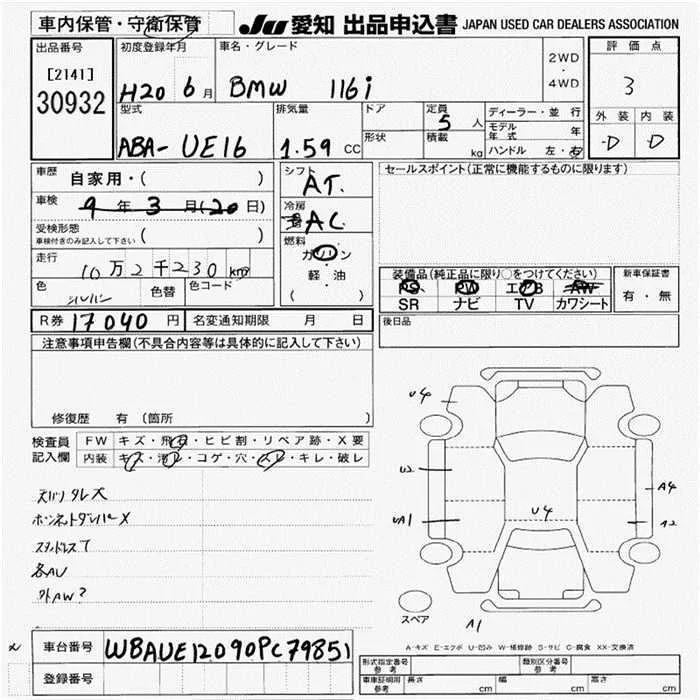 車内保管・守衛保管
JU 愛知 出品申込書 JAPAN USED CAR DEALERS ASSOCIATION
出品番号
[2141]
30932
初度登録年月
H20 6 月
車名・グレード
BMW 116i
2WD
・
4WD
評価点
3
外装 内装
D D
型式
ABA-UE16
排気量
1.59 CC
ドア
形状
定員
5 人
積載
kg
ディーラー・並 行
モデル年式 年
ハンドル 左・右
車歴
自家用・( )
車検
9 年 3 月(20 日)
受検形態
車検付きのみ記入して下さい ( )
走行
10万2千230km
色
シルバー
色替
色コード
シフト
AT.
冷房
AC
燃料
ガソリン
・
軽・油
( )
セールスポイント(正常に機能するものに限ります)
装備品(純正品に限り○をつけてください)
PS PW エアB AW
SR ナビ TV カワシート
新車保証書
有・無
R券 17040 円
名変通知期限 月 日
後日品
注意事項申告欄(不具合内容等は具体的に記入して下さい)
修復歴 有 (箇所 )
検査員
記入欄
FW キズ・飛石・ヒビ割・リペア跡・X要
内装 キズ・汚レ・コゲ・穴・スレ・キレ・破レ
天バリ タレ大
ボンネットダンパーX
各AU
外AW?
U4
U2
UA1
U4
A4
A2
スペア
A1
A-キズ E-エクボ U-凹み W-補修跡 S-サビ C-腐食 XX-交換済
車台番号 WBAUE12090PC79851
登録番号
形式指定番号
参考
類別区分番号
参考
車庫証明用
参考
長さ cm
幅 cm
高さ cm